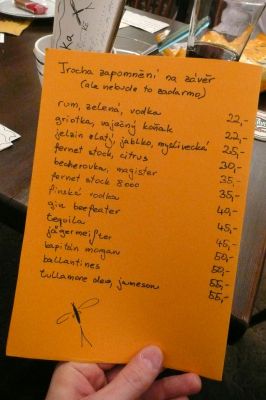 Trocha zapomnění na závěr
(ale nebude to zadarmo)
rum, zelená, vodka 22,-
griotka, vaječný koňak 22,-
jelzin zlatý, jablko, myslivecká 25,-
fernet stock, citrus 30,-
becherovka, magister 35,-
fernet stock 8000 35,-
finská vodka 40,-
gin beefeater 45,-
tequila 45,-
jägermeister 50,-
kapitán morgan 50,-
ballantines 55,-
tullamore dew, jameson 55,-